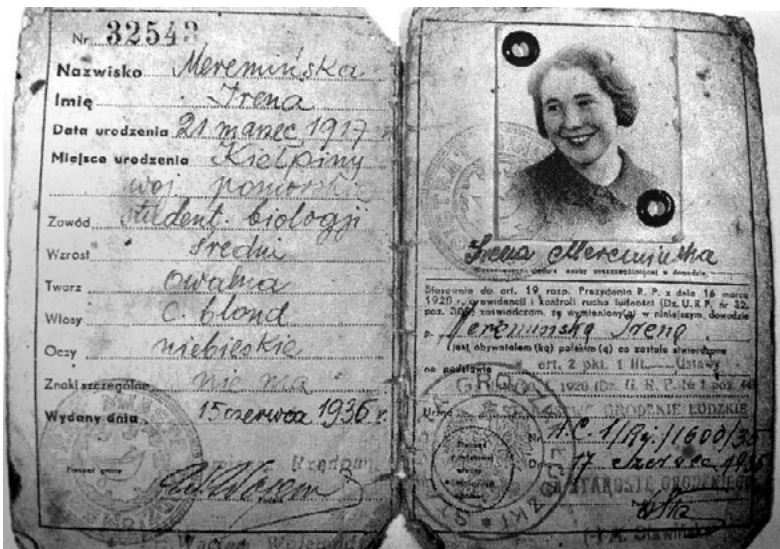 Nr. 32543
Nazwisko Meremińska
Imię Irena
Data urodzenia 21 marzec 1917 r
Miejsce urodzenia Kiełpiny
woj. pomorskie
Zawód student. biologji
Wzrost średni
Twarz owalna
Włosy c. blond
Oczy niebieskie
Znaki szczególne nie ma
Wydany dnia 15 czerwca 1936 r.
Pieczęć gminy
Irena Meremińska
Stosownie do art. 19 rozp. Prezydenta R. P. z dnia 16 marca
1928 r. o ewidencji i kontroli ruchu ludności (Dz. U. R. P. nr 32,
poz. 309) zaświadczam, że wymieniony(a) w niniejszym dowodzie
p. Meremińska Irena
jest obywatelem (ką) polskim (ą) co zostało stwierdzone
na podstawie art. 2 pkt. 1 Ustawy
1920 (Dz. U. R. P. Nr 7 poz. 44)
Urząd GRODZKIE ŁÓDZKIE
Nr
17
STAROSTĘ GRODZKIEGO